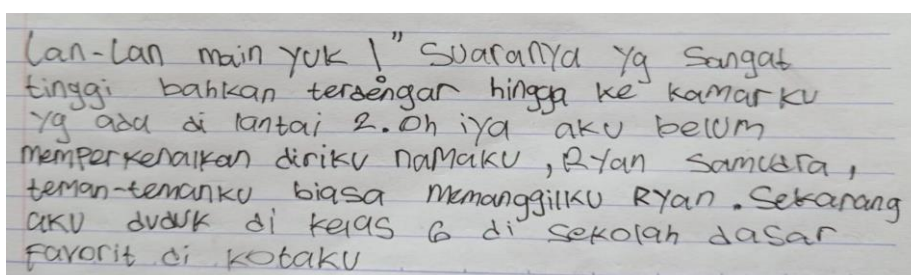 Lan-Lan main yuk !" suaranya yg sangat
tinggi bahkan terdengar hingga ke kamarku
yg ada di lantai 2. Oh iya aku belum
memperkenalkan diriku namaku , Ryan Samudra ,
teman-temanku biasa memanggilku Ryan . Sekarang
aku duduk di kelas 6 di sekolah dasar
Favorit di kotaku